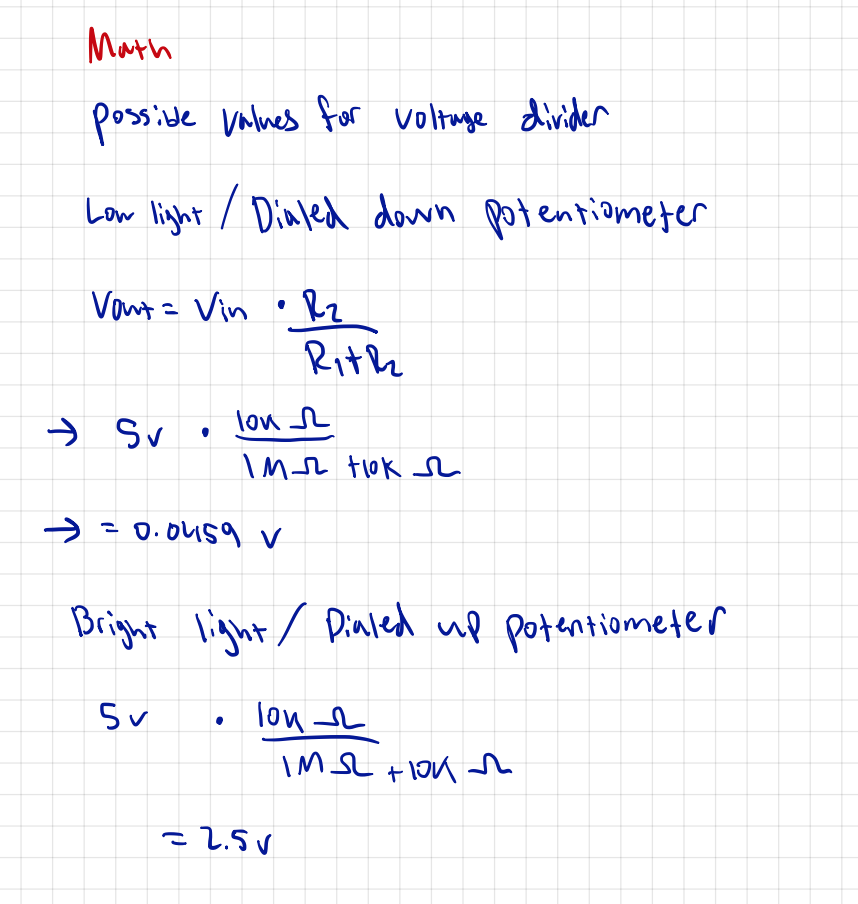 Math
possible values for voltage divider
Low light / Dialed down potentiometer
Vout = Vin · R2
R1+R2
→ 5v · 10k Ω
1M Ω +10K Ω
→ = 0.0459 v
Bright light / Dialed up potentiometer
5v · 10k Ω
1M Ω +10K Ω
= 2.5v